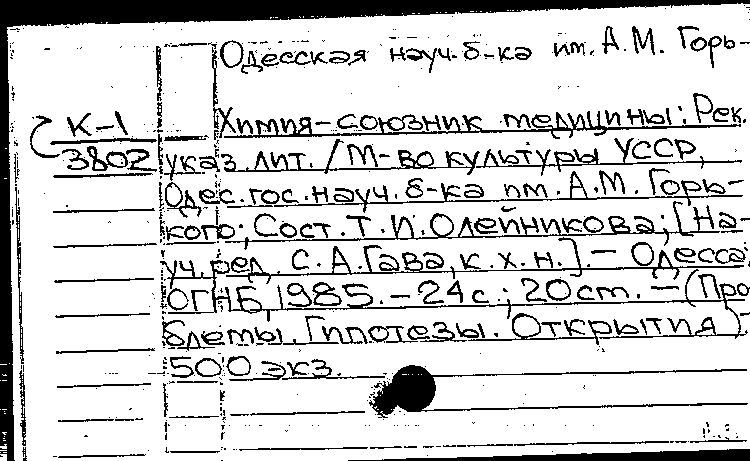 Одесская науч. б-ка им. А.М. Горь-
К-1
3802
Химия-союзник медицины: Рек.
указ. лит. / М-во культуры УССР,
Одес. гос. науч. б-ка им. А.М. Горь-
кого; Сост. Т.И. Олейникова; [На-
уч. ред. С.А. Гава, к.х.н.]. - Одесса:
ОГНБ, 1985. - 24 с.; 20 см. - (Про
блемы. Гипотезы. Открытия).
500 экз.